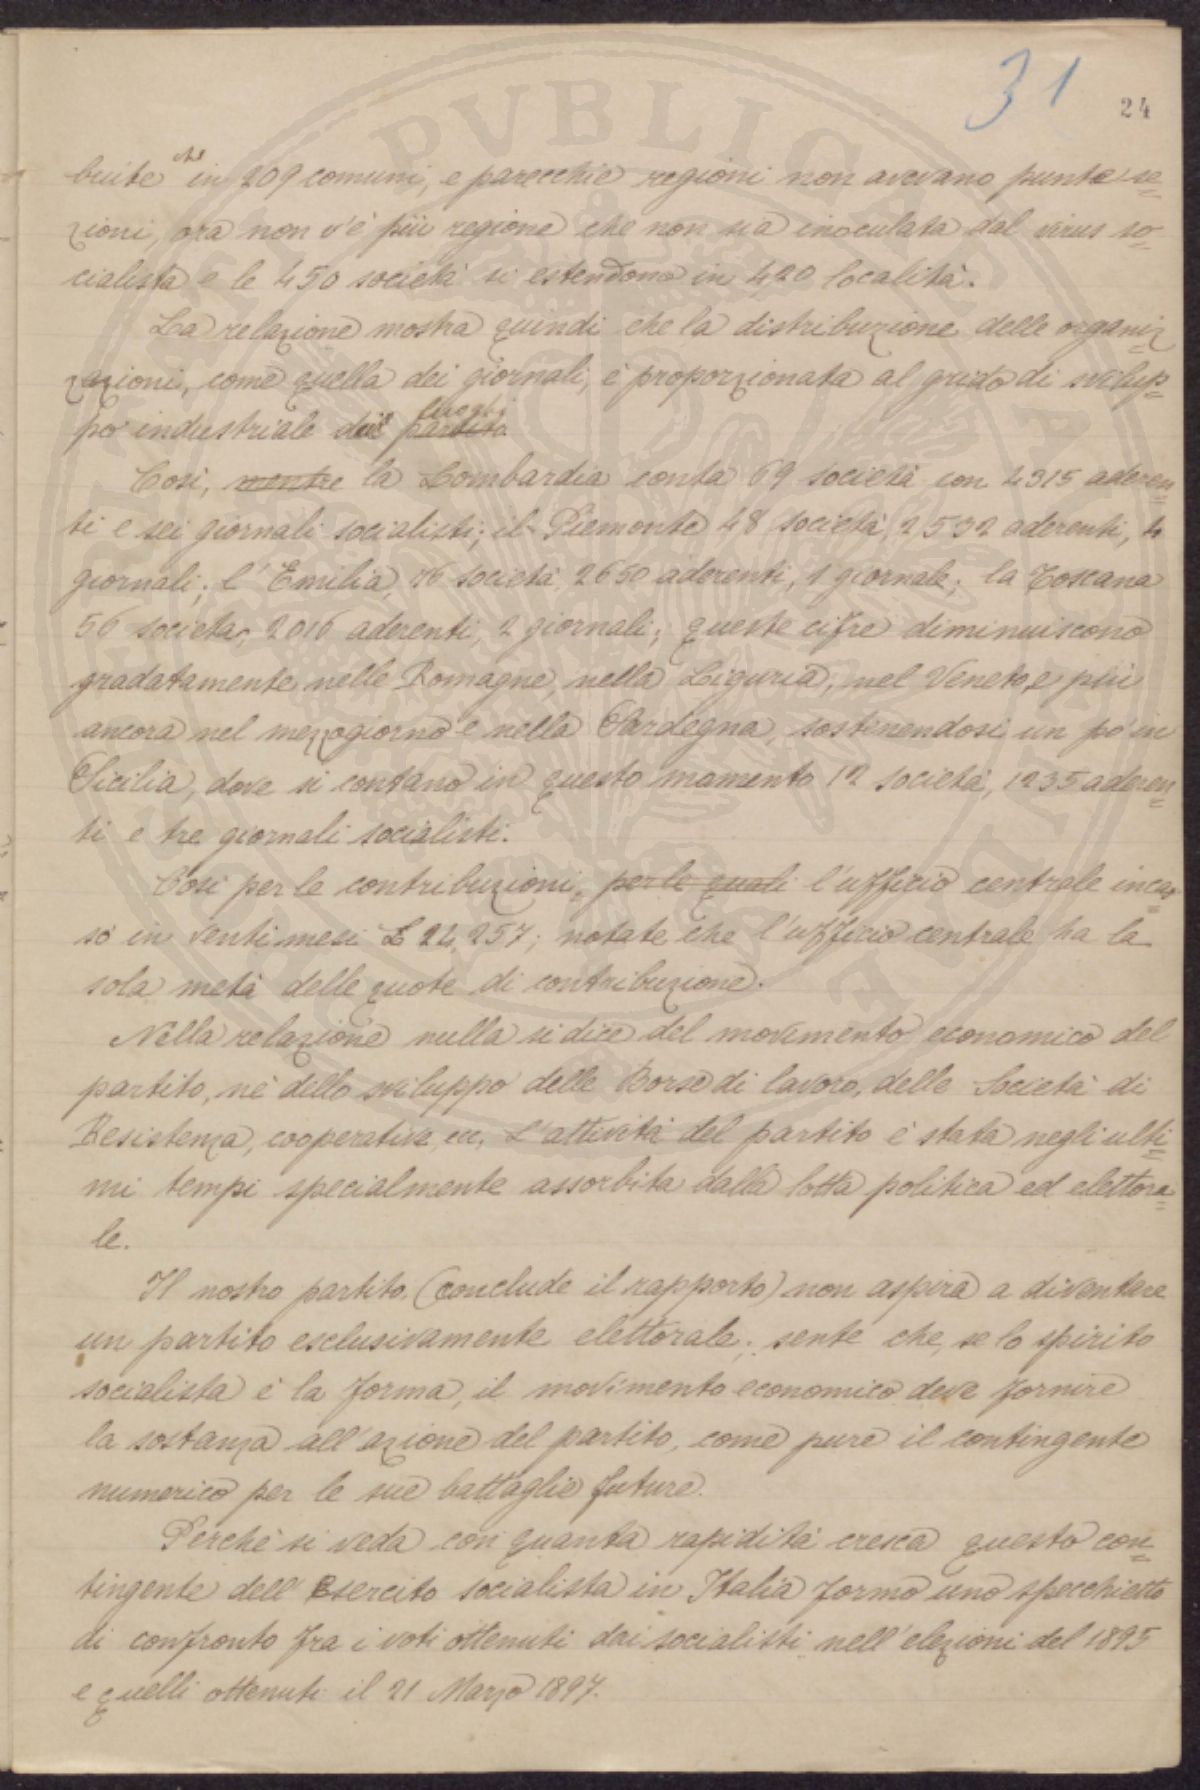 31
24
buite in 209 comuni, e parecchie regioni non avevano punte se=
zioni, ora non v'è più regione che non sia inoculata dal virus so=
cialista e le 450 società si estendono in 420 località.
La relazione mostra quindi che la distribuzione delle organiz=
zazioni, come quella dei giornali, è proporzionata al grado di svilup=
luoghi
po industriale dei partito
Così, mentre la Lombardia conta 69 società con 4315 aderen=
ti e sei giornali socialisti; il Piemonte 48 società 2532 aderenti, 4
giornali; l'Emilia, 76 società 2650 aderenti, 1 giornale; la Toscana
56 società, 2016 aderenti, 2 giornali; queste cifre diminuiscono
gradatamente nelle Romagne, nella Liguria, nel Veneto, e più
ancora nel mezzogiorno e nella Sardegna, sostenendosi un po' in
Sicilia, dove si contano in questo momento 12 società, 1235 aderen=
ti e tre giornali socialisti.
Così per le contribuzioni, per le quali l'ufficio centrale incas=
sò in venti mesi £ 22,257; notate che l'ufficio centrale ha la
sola metà delle quote di contribuzione.
Nella relazione nulla si dice del movimento economico del
partito, nè dello sviluppo delle Borse di lavoro, delle Società di
Resistenza, cooperative, ecc. L'attività del partito è stata negli ulti=
mi tempi specialmente assorbita dalla lotta politica ed elettora=
le.
Il nostro partito (conclude il rapporto) non aspira a diventare
un partito esclusivamente elettorale; sente che, se lo spirito
socialista è la forma, il movimento economico deve fornire
la sostanza all'azione del partito, come pure il contingente
numerico per le sue battaglie future.
Perchè si veda con quanta rapidità cresca questo con=
tingente dell'Esercito socialista in Italia formo uno specchietto
di confronto fra i voti ottenuti dai socialisti nell'elezioni del 1895
e quelli ottenuti il 21 Marzo 1897.